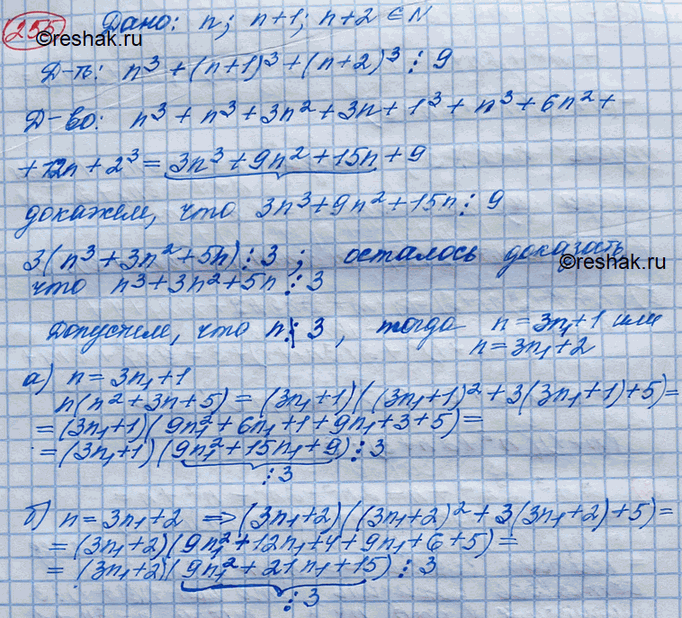 255 Дано: n; n+1; n+2 ∈ N
©reshak.ru
Д-ть: n³ + (n+1)³ + (n+2)³ ⋮ 9
Д-во: n³ + n³ + 3n² + 3n + 1³ + n³ + 6n² +
+ 12n + 2³ = 3n³ + 9n² + 15n + 9
докажем, что 3n³ + 9n² + 15n ⋮ 9
3(n³ + 3n² + 5n) ⋮ 3 ; осталось доказать,
©reshak.ru
что n³ + 3n² + 5n ⋮ 3
Допустим, что n ⋮̸ 3, тогда n = 3n₁ + 1 или
n = 3n₁ + 2
а) n = 3n₁ + 1
n(n² + 3n + 5) = (3n₁ + 1)((3n₁ + 1)² + 3(3n₁ + 1) + 5) =
= (3n₁ + 1)(9n₁² + 6n₁ + 1 + 9n₁ + 3 + 5) =
= (3n₁ + 1)(9n₁² + 15n₁ + 9) ⋮ 3
⋮ 3
б) n = 3n₁ + 2 ⇒ (3n₁ + 2)((3n₁ + 2)² + 3(3n₁ + 2) + 5) =
= (3n₁ + 2)(9n₁² + 12n₁ + 4 + 9n₁ + 6 + 5) =
= (3n₁ + 2)(9n₁² + 21n₁ + 15) ⋮ 3
⋮ 3